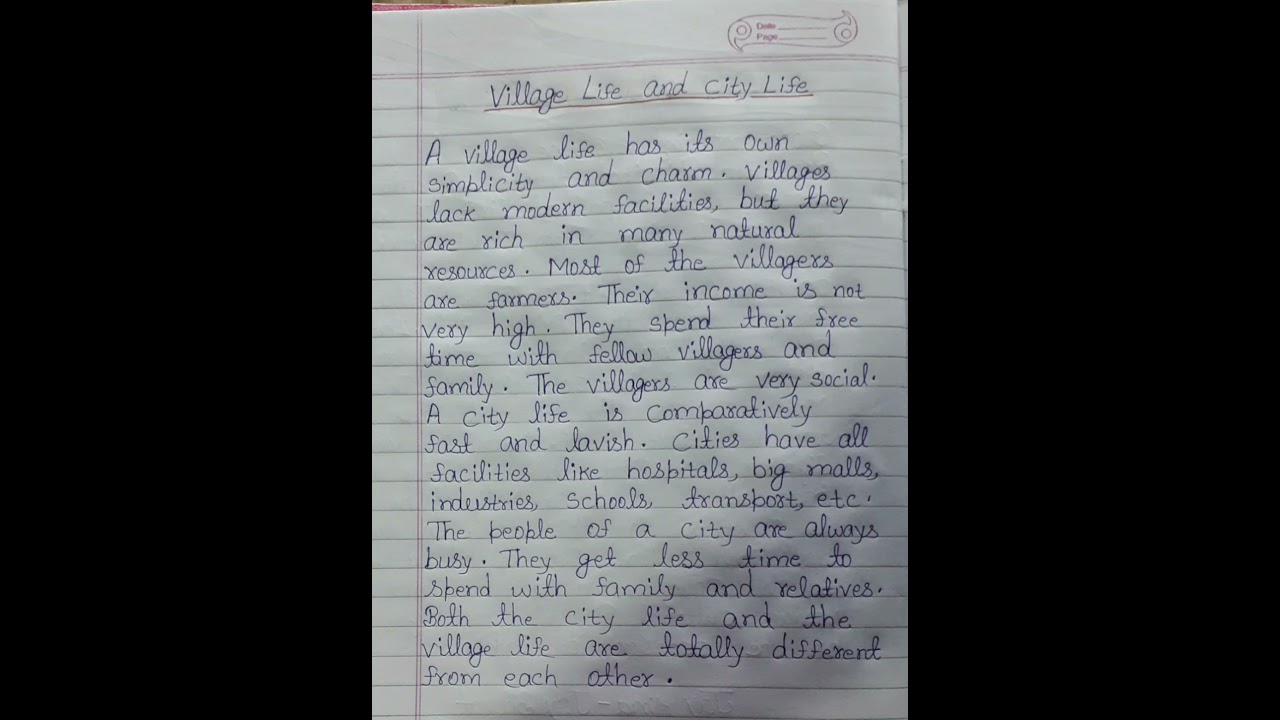 Date
Page
Village Life and City Life
A village life has its own
simplicity and charm. Villages
lack modern facilities, but they
are rich in many natural
resources. Most of the villagers
are farmers. Their income is not
very high. They spend their free
time with fellow villagers and
family. The villagers are very social.
A city life is comparatively
fast and lavish. Cities have all
facilities like hospitals, big malls,
industries, schools, transport, etc.
The people of a city are always
busy. They get less time to
spend with family and relatives.
Both the city life and the
village life are totally different
from each other.